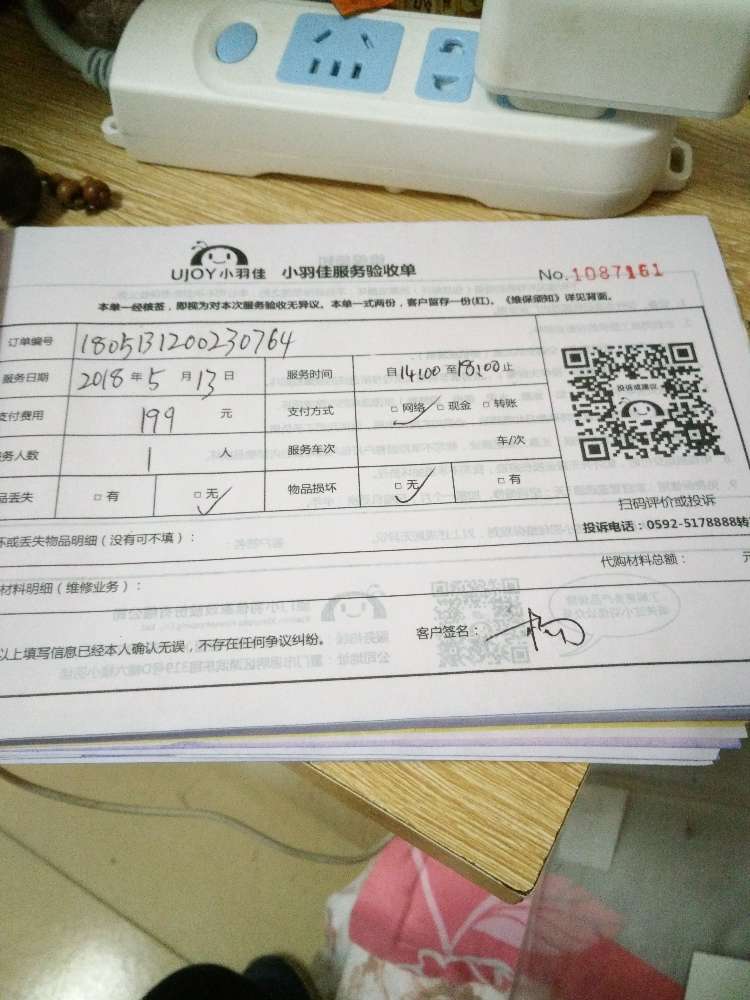 UJOY小羽佳 小羽佳服务验收单 No.1087161
本单一经核签，即视为对本次服务验收无异议。本单一式两份，客户留存一份(红)。《维保须知》详见背面。
订单编号 1805131200230764
服务日期 2018年5月13日 服务时间 自14:00至18:00止
支付费用 199元 支付方式 □网络✓ □现金 □转账
务人数 1人 服务车次 车/次
品丢失 □有 □无✓ 物品损坏 □无✓ □有
投诉或建议
扫码评价或投诉
投诉电话：0592-5178888转
坏或丢失物品明细（没有可不填）：
代购材料总额： 元
材料明细（维修业务）：
以上填写信息已经本人确认无误，不存在任何争议纠纷。 客户签名：